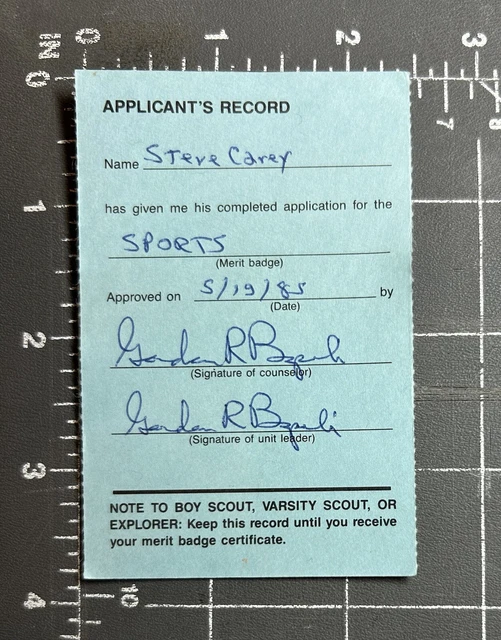 IN 0 1 2 3
7 8
APPLICANT'S RECORD
Name Steve Carey
has given me his completed application for the
SPORTS
(Merit badge)
Approved on 5/19/85 by
(Date)
Gordon R
(Signature of counselor)
Gordon R
(Signature of unit leader)
NOTE TO BOY SCOUT, VARSITY SCOUT, OR
EXPLORER: Keep this record until you receive
your merit badge certificate.
0
1
2
3
4
10